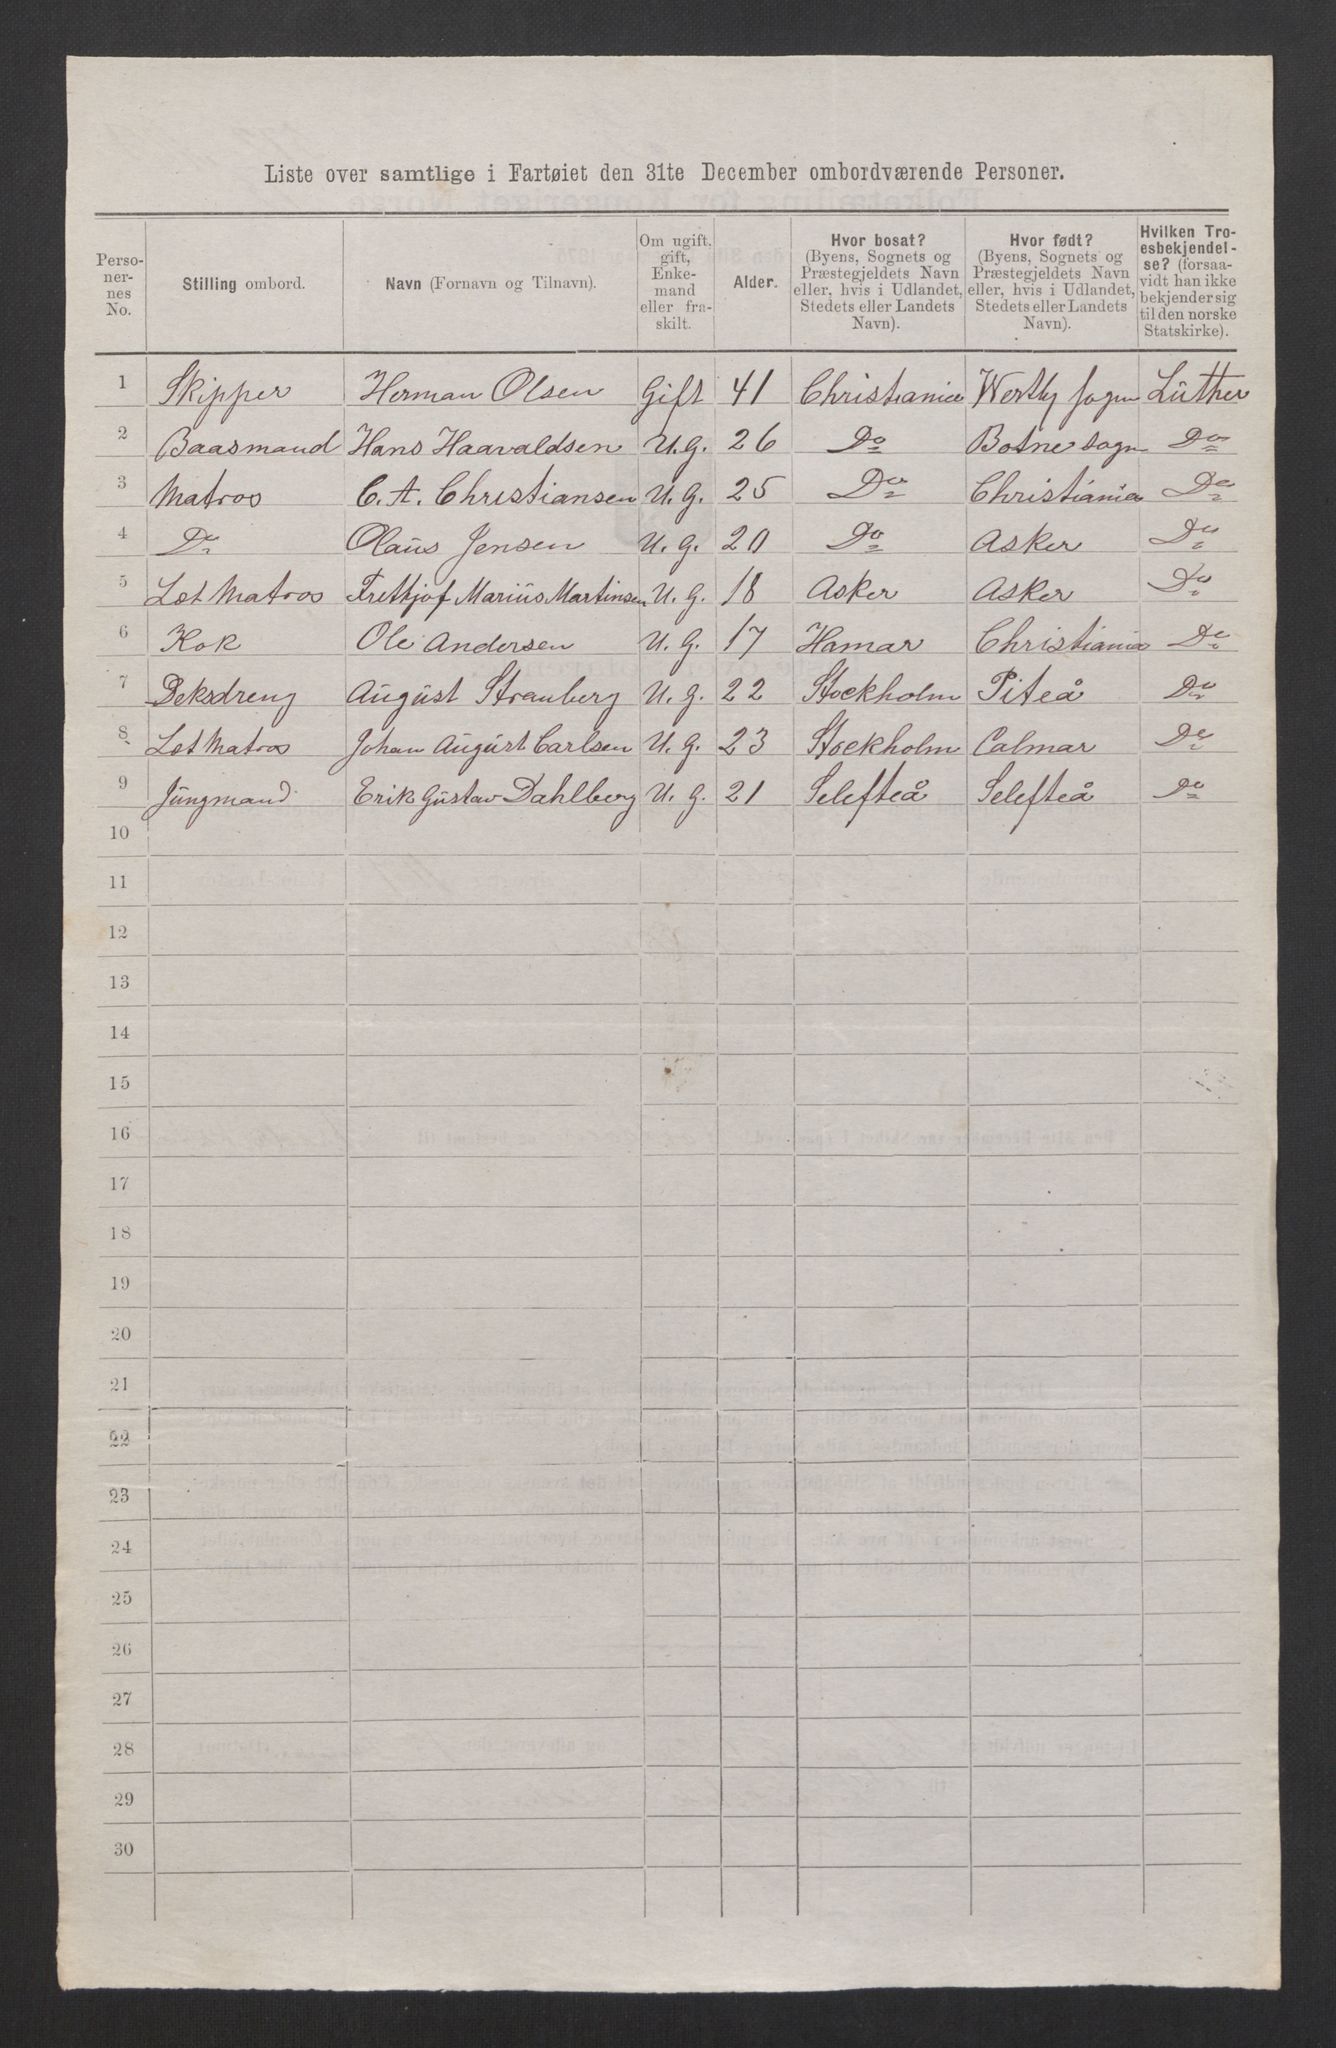 Liste over samtlige i Fartøiet den 31te December ombordværende Personer.
Perso-
ner-
nes
No.
Stilling ombord.
Navn (Fornavn og Tilnavn).
Om ugift,
gift,
Enke-
mand
eller fra-
skilt.
Alder.
Hvor bosat?
(Byens, Sognets og
Præstegjeldets Navn
eller, hvis i Udlandet,
Stedets eller Landets
Navn).
Hvor født?
(Byens, Sognets og
Præstegjeldets Navn
eller, hvis i Udlandet,
Stedets eller Landets
Navn).
Hvilken Tro-
esbekjendel-
se? (forsaa-
vidt han ikke
bekjender sig
til den norske
Statskirke).
1 Skipper Herman Olsen Gift 41 Christiania Sogn Luther
2 Baasmand Hans Haavaldsen U.G. 26 Do Botne sogn Do
3 Matros C. A. Christiansen U.G. 25 Do Christiania Do
4 Do Olaus Jensen U.G. 20 Do Asker Do
5 Let Matros Frethjof Marius Martinsen U.G. 18 Asker Asker Do
6 Kok Ole Andersen U.G. 17 Hamar Christiania Do
7 Deksdreng August Stramberg U.G. 22 Stockholm Piteå Do
8 Let Matros Johan August Carlsen U.G. 23 Stockholm Calmar Do
9 Jungmand Erik Gustav Dahlberg U.G. 21 Selefteå Selefteå Do
10
11
12
13
14
15
16
17
18
19
20
21
22
23
24
25
26
27
28
29
30